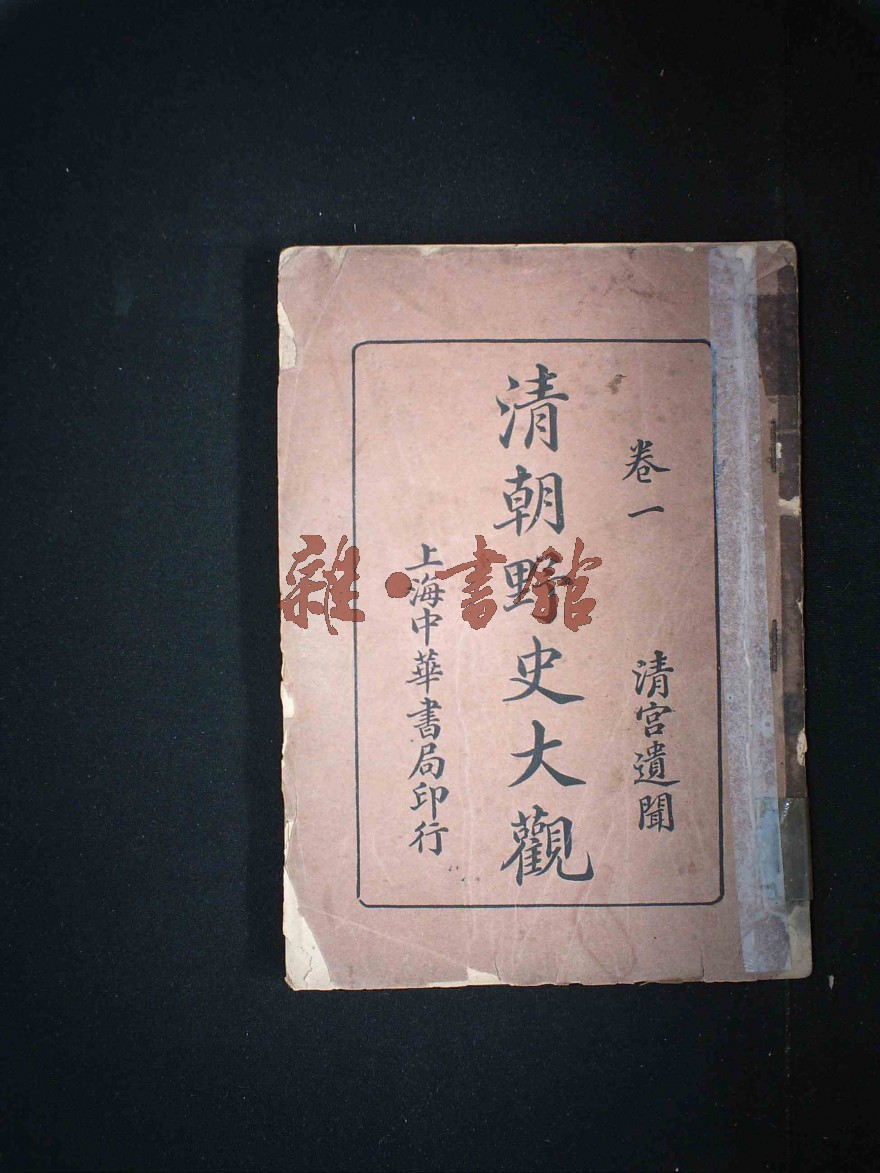 卷一 清宮遺聞
清朝野史大觀
上海中華書局印行
雜·書館